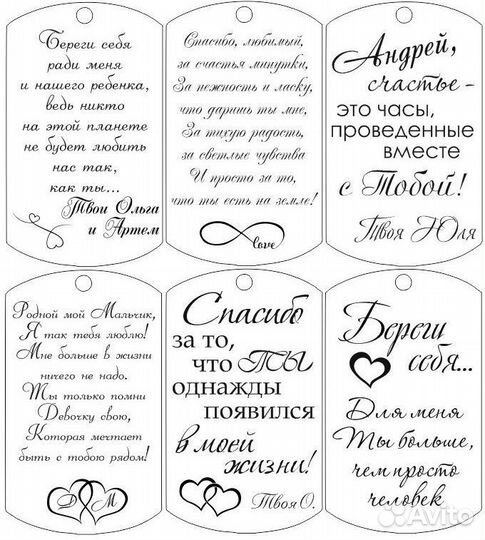 Береги себя
ради меня
и нашего ребенка,
ведь никто
на этой планете
не будет любить
нас так,
как ты...
Твои Ольга
и Артем
Спасибо, любимый,
за счастья минутки,
За нежность и ласку,
что даришь ты мне,
За тихую радость,
за светлые чувства
И просто за то,
что ты есть на земле!
love
Андрей,
счастье -
это часы,
проведенные
вместе
с Тобой!
Твоя Юля
Родной мой Мальчик,
Я так тебя люблю!
Мне больше в жизни
ничего не надо.
Ты только помни
Девочку свою,
Которая мечтает
быть с тобою рядом!
Д М
Спасибо
за то,
что ТЫ
однажды
появился
в моей
жизни!
Твоя О.
Береги
себя...
Для меня
Ты больше,
чем просто
человек
Avito